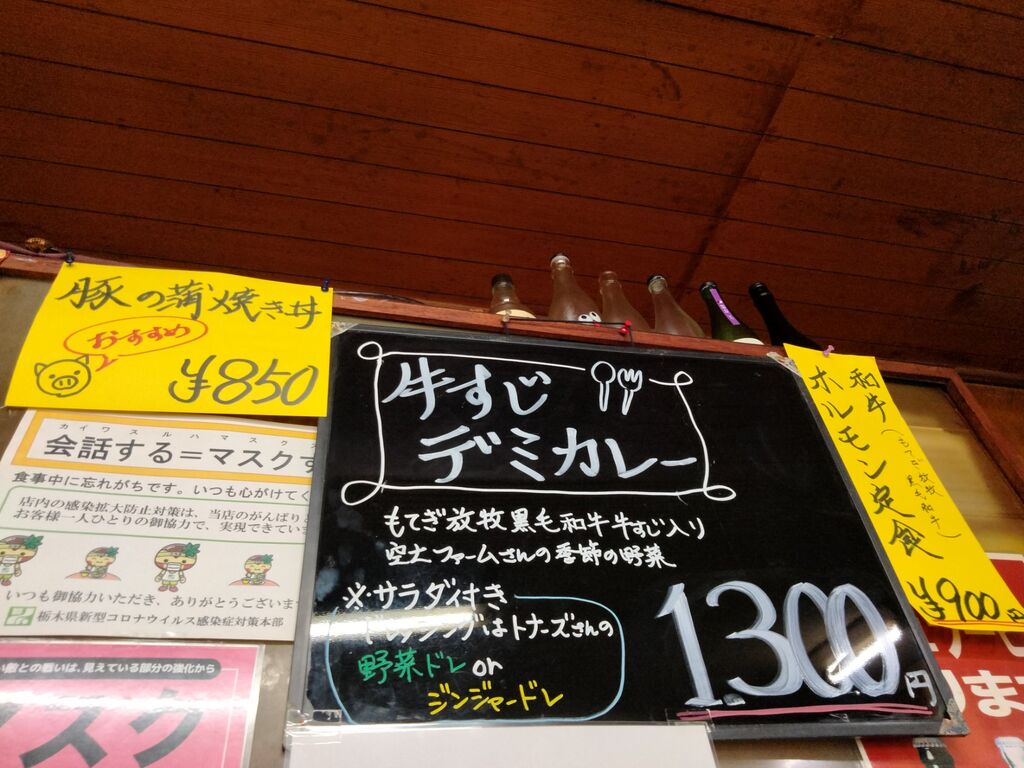 豚の蒲焼き丼
おすすめ
¥850
カイワスルハマスク
会話する=マスクす
食事中に忘れがちです。いつも心がけてく
店内の感染拡大防止対策は、当店のがんばり
お客様一人ひとりの御協力で、実現できてい
いつも御協力いただき、ありがとうございま
栃木県新型コロナウイルス感染症対策本部
との戦いは、見えている部分の強化から
スク
牛すじ
デミカレー
もてぎ放牧黒毛和牛牛すじ入り
空土ファームさんの季節の野菜
※サラダ付き
ドレッシングはトナーズさんの
野菜ドレ or
ジンジャードレ
1.300円
和牛(もてぎ放牧黒毛和牛)
ホルモン定食
¥900円